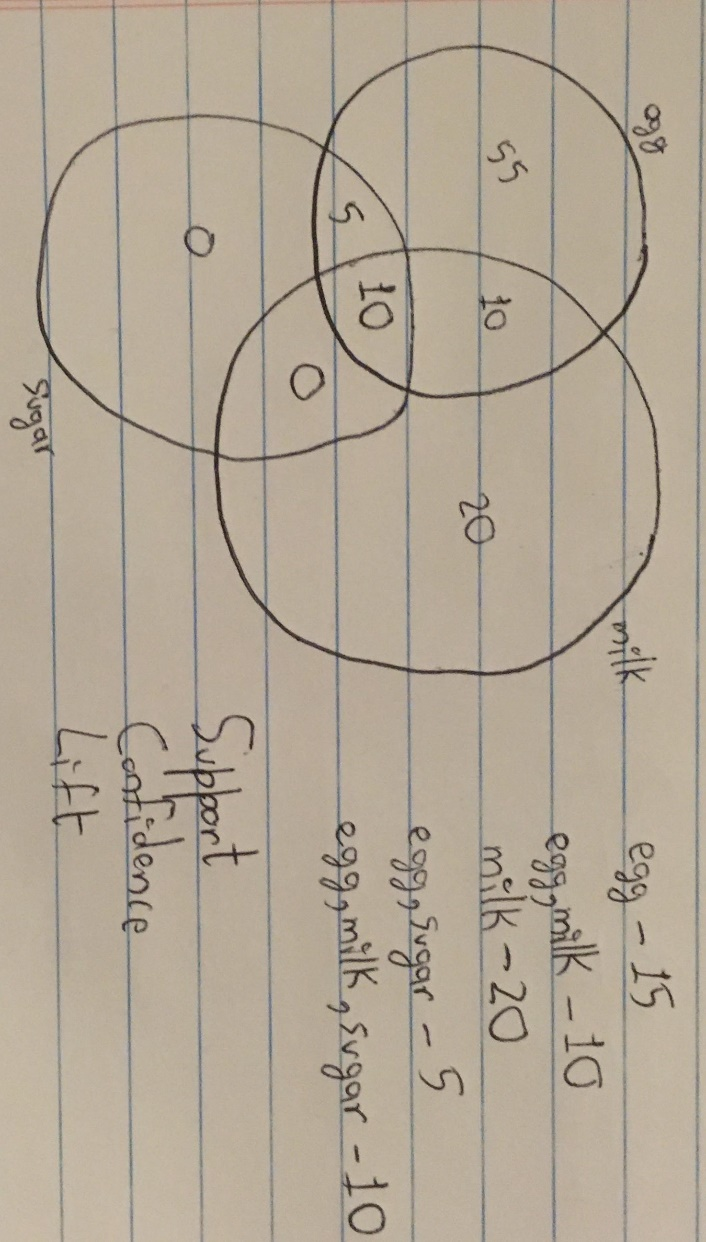 egg
milk
55
10
20
5
10
0
0
sugar
egg - 15
egg, milk - 10
milk - 20
egg, sugar - 5
egg, milk, sugar - 10
Support
Confidence
Lift